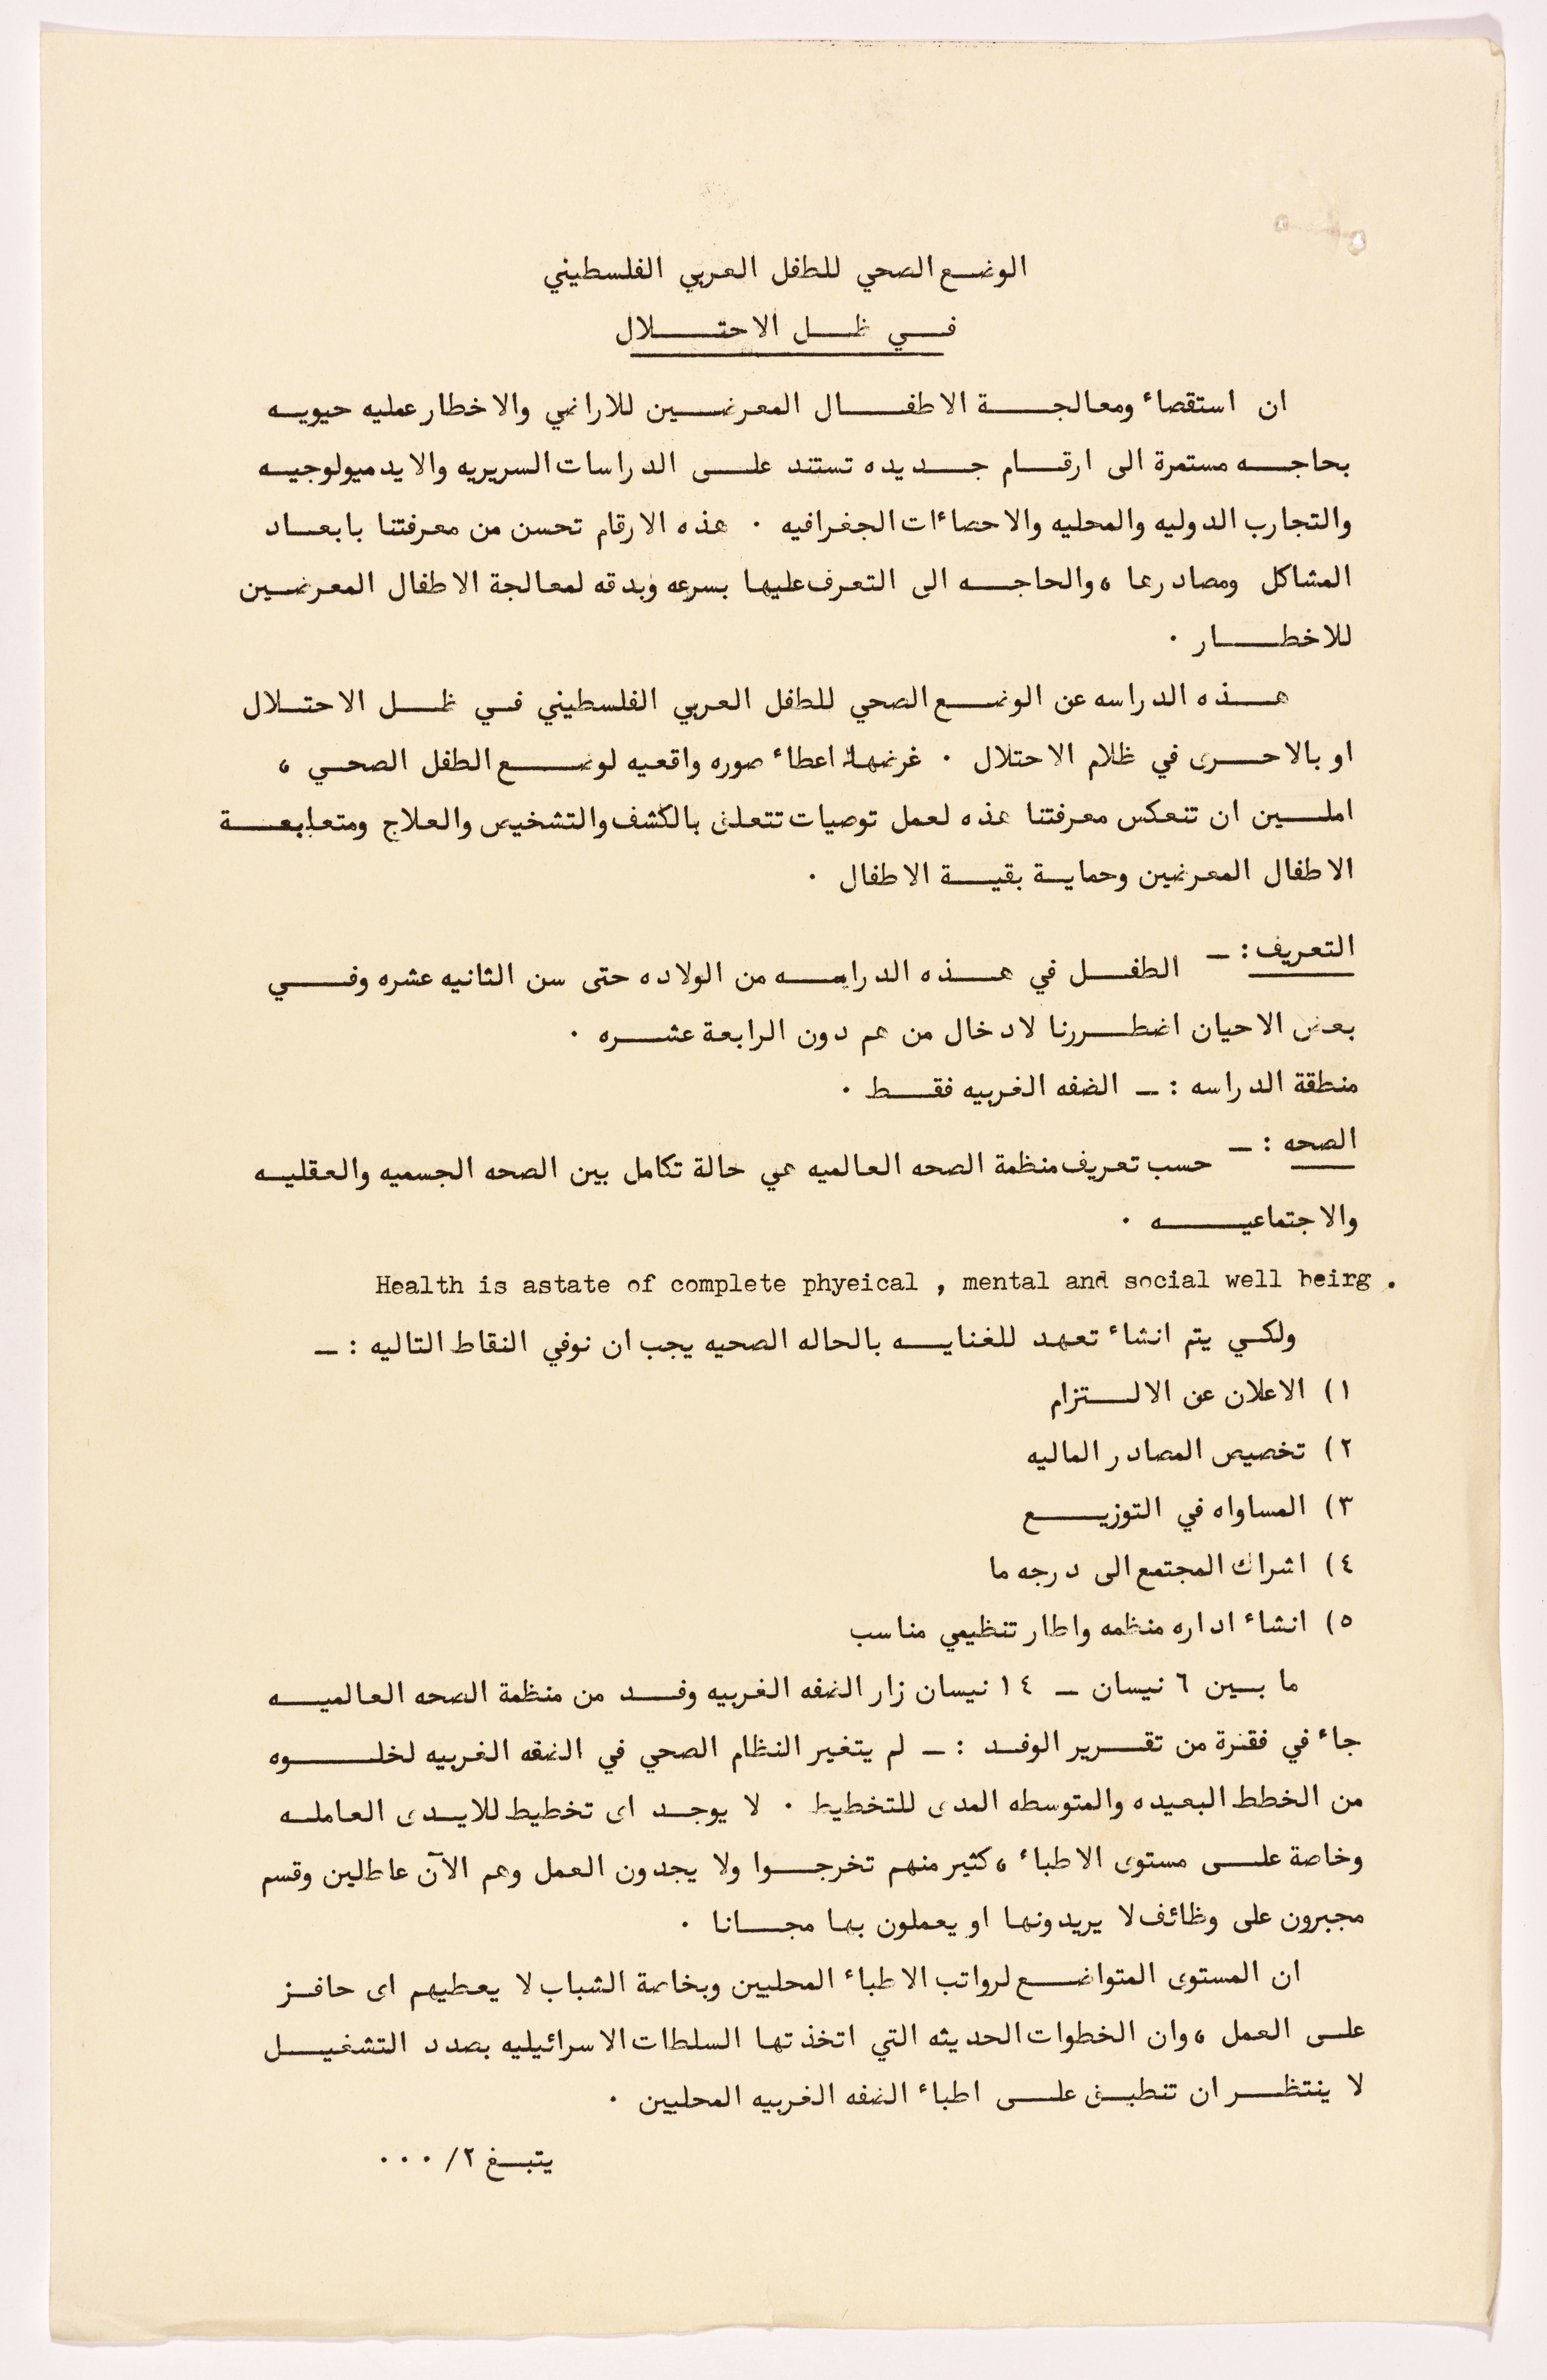 الوضع الصحي للطفل العربي الفلسطيني
في ظل الاحتلال
ان استقصاء ومعالجة الاطفال المعرضين للاراضي والاخطار عمليه حيويه
بحاجه مستمرة الى ارقام جديده تستند على الدراسات السريريه والايدميولوجيه
والتجارب الدوليه والمحليه والاحصاءات الجغرافيه . هذه الارقام تحسن من معرفتنا بابعاد
المشاكل ومصادرها ، والحاجه الى التعرف عليها بسرعه وبدقه لمعالجة الاطفال المعرضين
للاخطار .
هذه الدراسه عن الوضع الصحي للطفل العربي الفلسطيني في ظل الاحتلال
او بالاحرى في ظلام الاحتلال . غرضها اعطاء صوره واقعيه لوضع الطفل الصحي ،
املين ان تنعكس معرفتنا هذه لعمل توصيات تتعلق بالكشف والتشخيص والعلاج ومتعابعة
الاطفال المعرضين وحماية بقية الاطفال .
التعريف : — الطفل في هذه الدراسه من الولاده حتى سن الثانيه عشره وفي
بعض الاحيان اضطررنا لادخال من هم دون الرابعة عشره .
منطقة الدراسه : — الضفه الغربيه فقط .
الصحه : — حسب تعريف منظمة الصحه العالميه هي حالة تكامل بين الصحه الجسميه والعقليه
والاجتماعيه .
Health is astate of complete phyeical , mental and social well beirg .
ولكي يتم انشاء تعهد للغنايه بالحاله الصحيه يجب ان نوفي النقاط التاليه : —
١) الاعلان عن الالتزام
٢) تخصيص المصادر الماليه
٣) المساواه في التوزيع
٤) اشراك المجتمع الى درجه ما
٥) انشاء اداره منظمه واطار تنظيمي مناسب
ما بين ٦ نيسان — ١٤ نيسان زار الضفه الغربيه وفد من منظمة الصحه العالميه
جاء في فقرة من تقرير الوفد : — لم يتغير النظام الصحي في الضفه الغربيه لخلوه
من الخطط البعيده والمتوسطه المدى للتخطيط . لا يوجد اى تخطيط للايدى العامله
وخاصة على مستوى الاطباء ، كثير منهم تخرجوا ولا يجدون العمل وهم الآن عاطلين وقسم
مجبرون على وظائف لا يريدونها او يعملون بها مجانا .
ان المستوى المتواضع لرواتب الاطباء المحليين وبخاصة الشباب لا يعطيهم اى حافز
على العمل ، وان الخطوات الحديثه التي اتخذتها السلطات الاسرائيليه بصدد التشغيل
لا ينتظر ان تنطبق على اطباء الضفه الغربيه المحليين .
يتبغ ٢/ ...